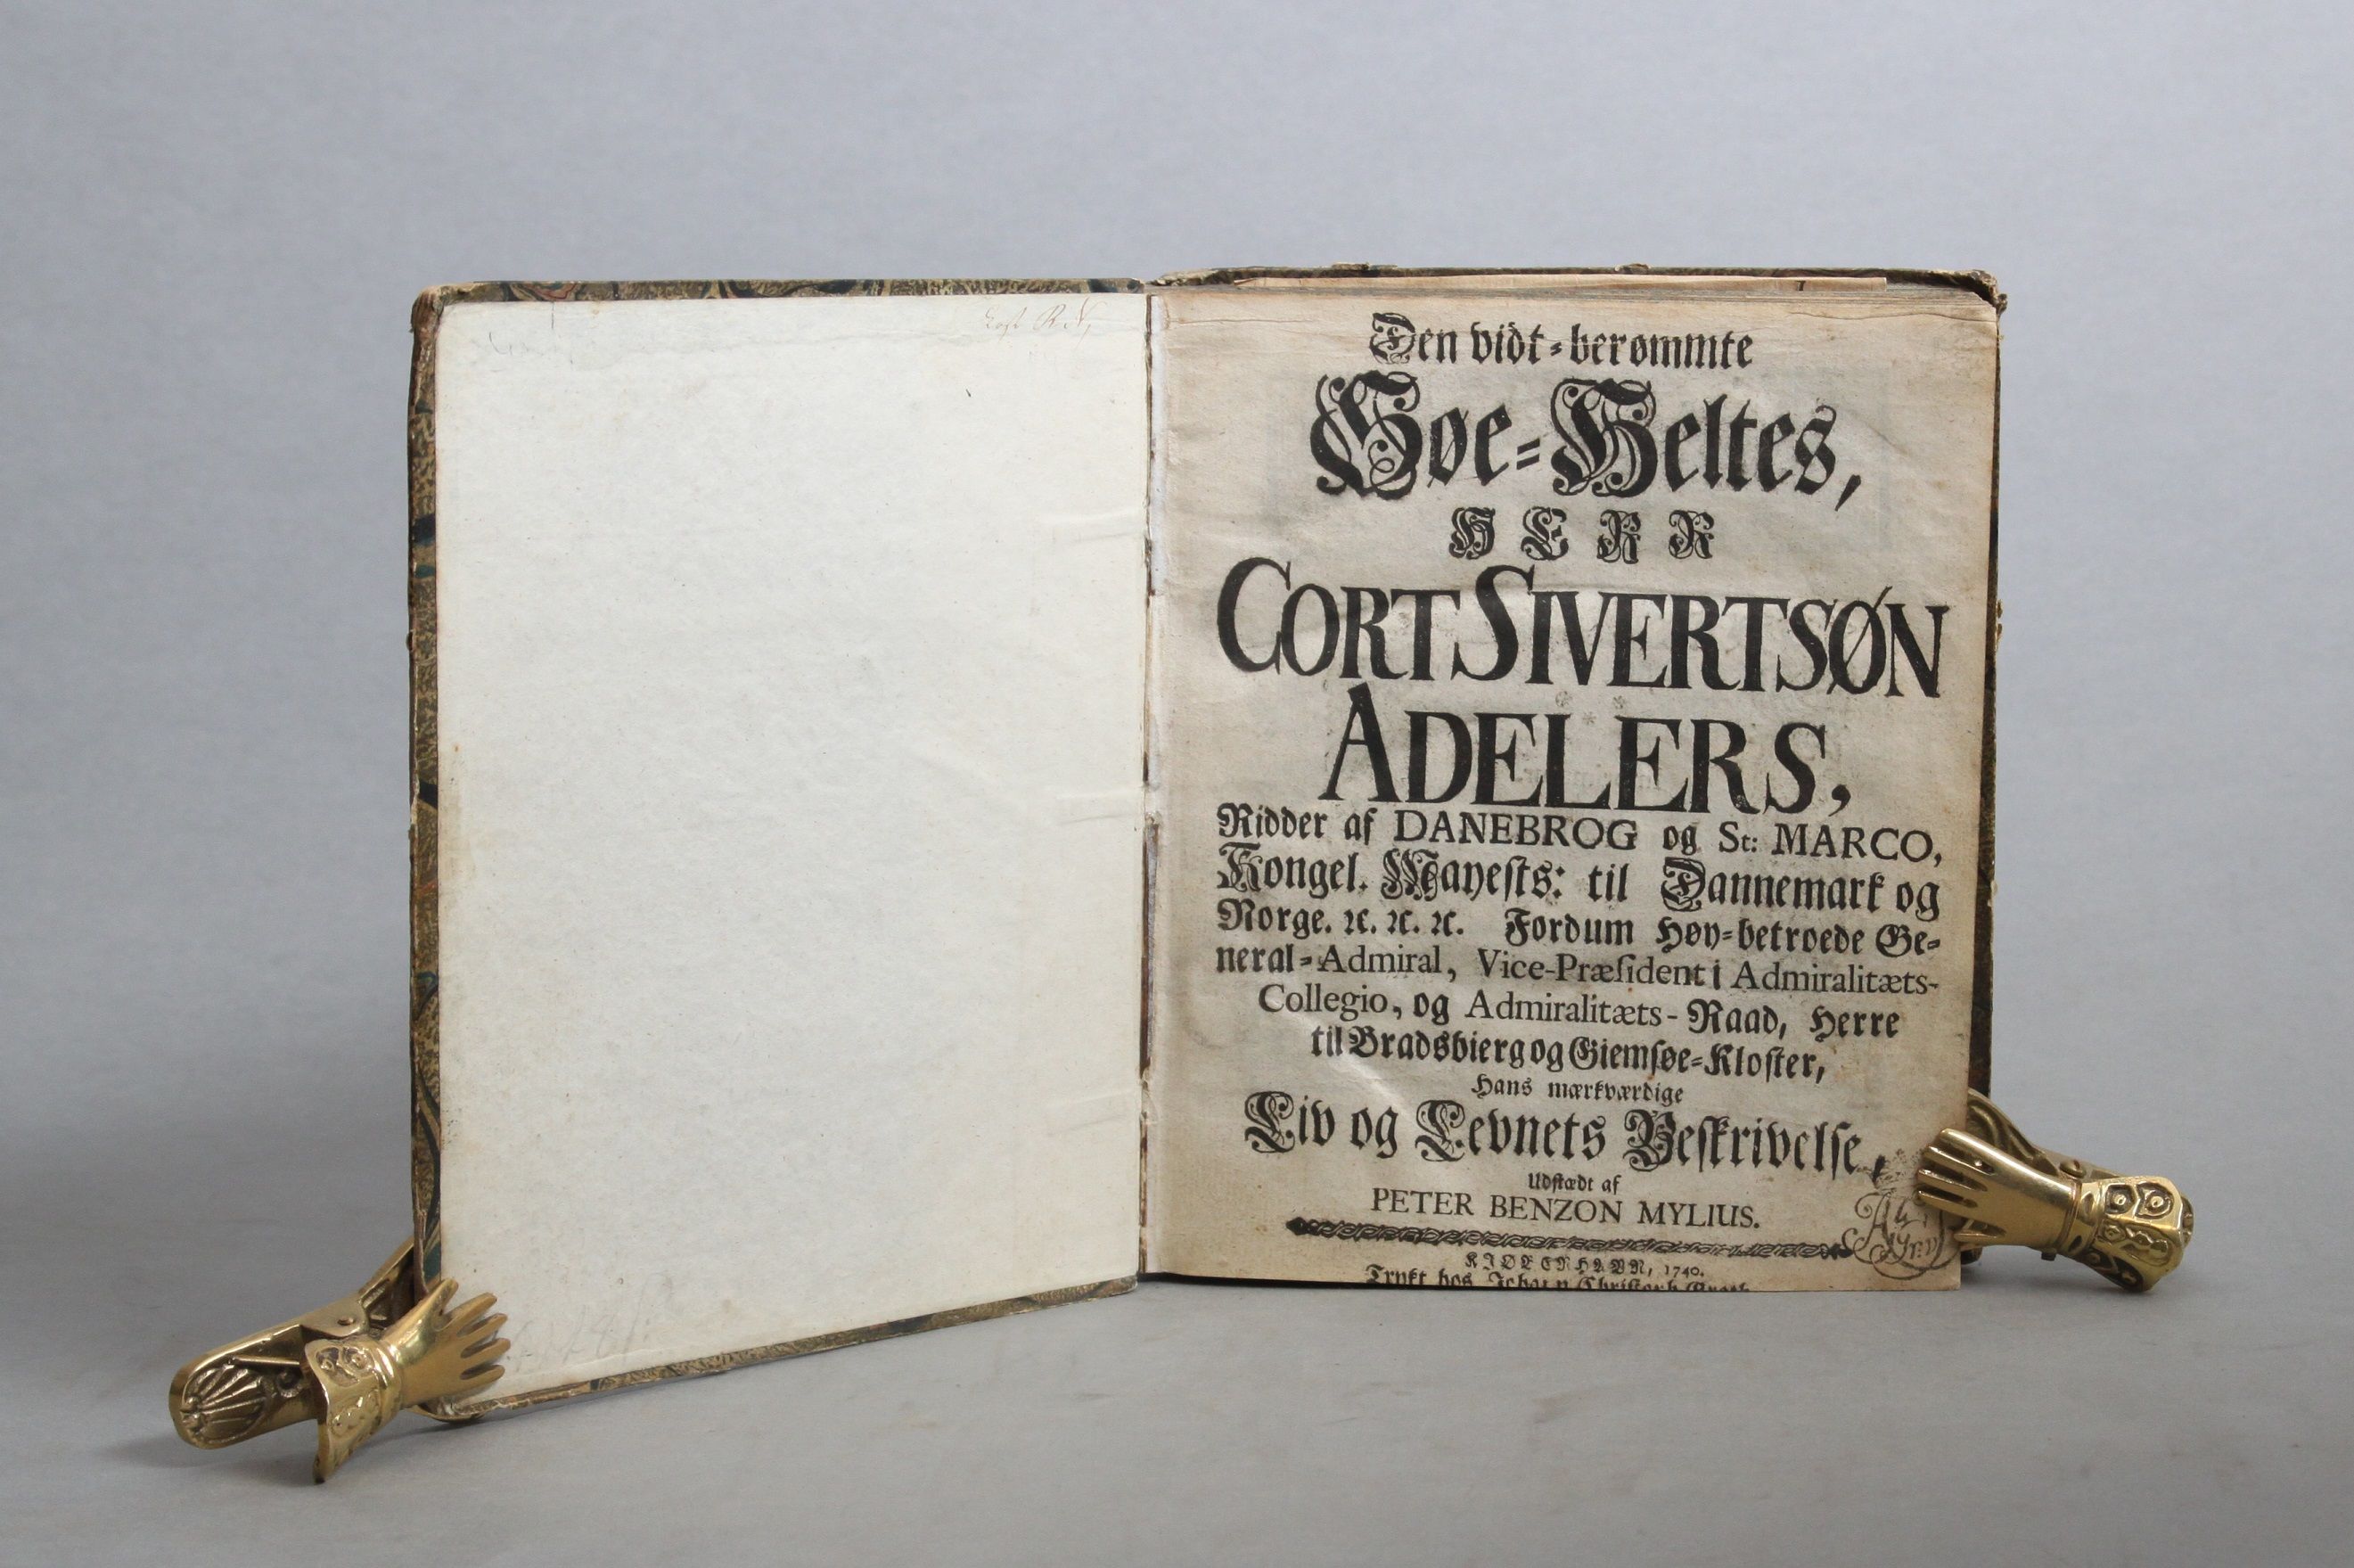 Den vidt-berømmte
Søe-Heltes,
HERR
CORT SIVERTSØN
ADELERS,
Ridder af DANEBROG og St: MARCO,
Kongel. Mayests: til Dannemark og
Norge. ꝛc. ꝛc. ꝛc. Fordum Høy-betroede Ge-
neral-Admiral, Vice-Præſident i Admiralitæts-
Collegio, og Admiralitæts-Raad, Herre
til Bradsbierg og Giemſøe-Kloſter,
Hans mærkværdige
Liv og Levnets Beſkrivelſe,
Udſtædt af
PETER BENZON MYLIUS.
KIØBENHAVN, 1740.
Trykt hos Johan Chriſtoph